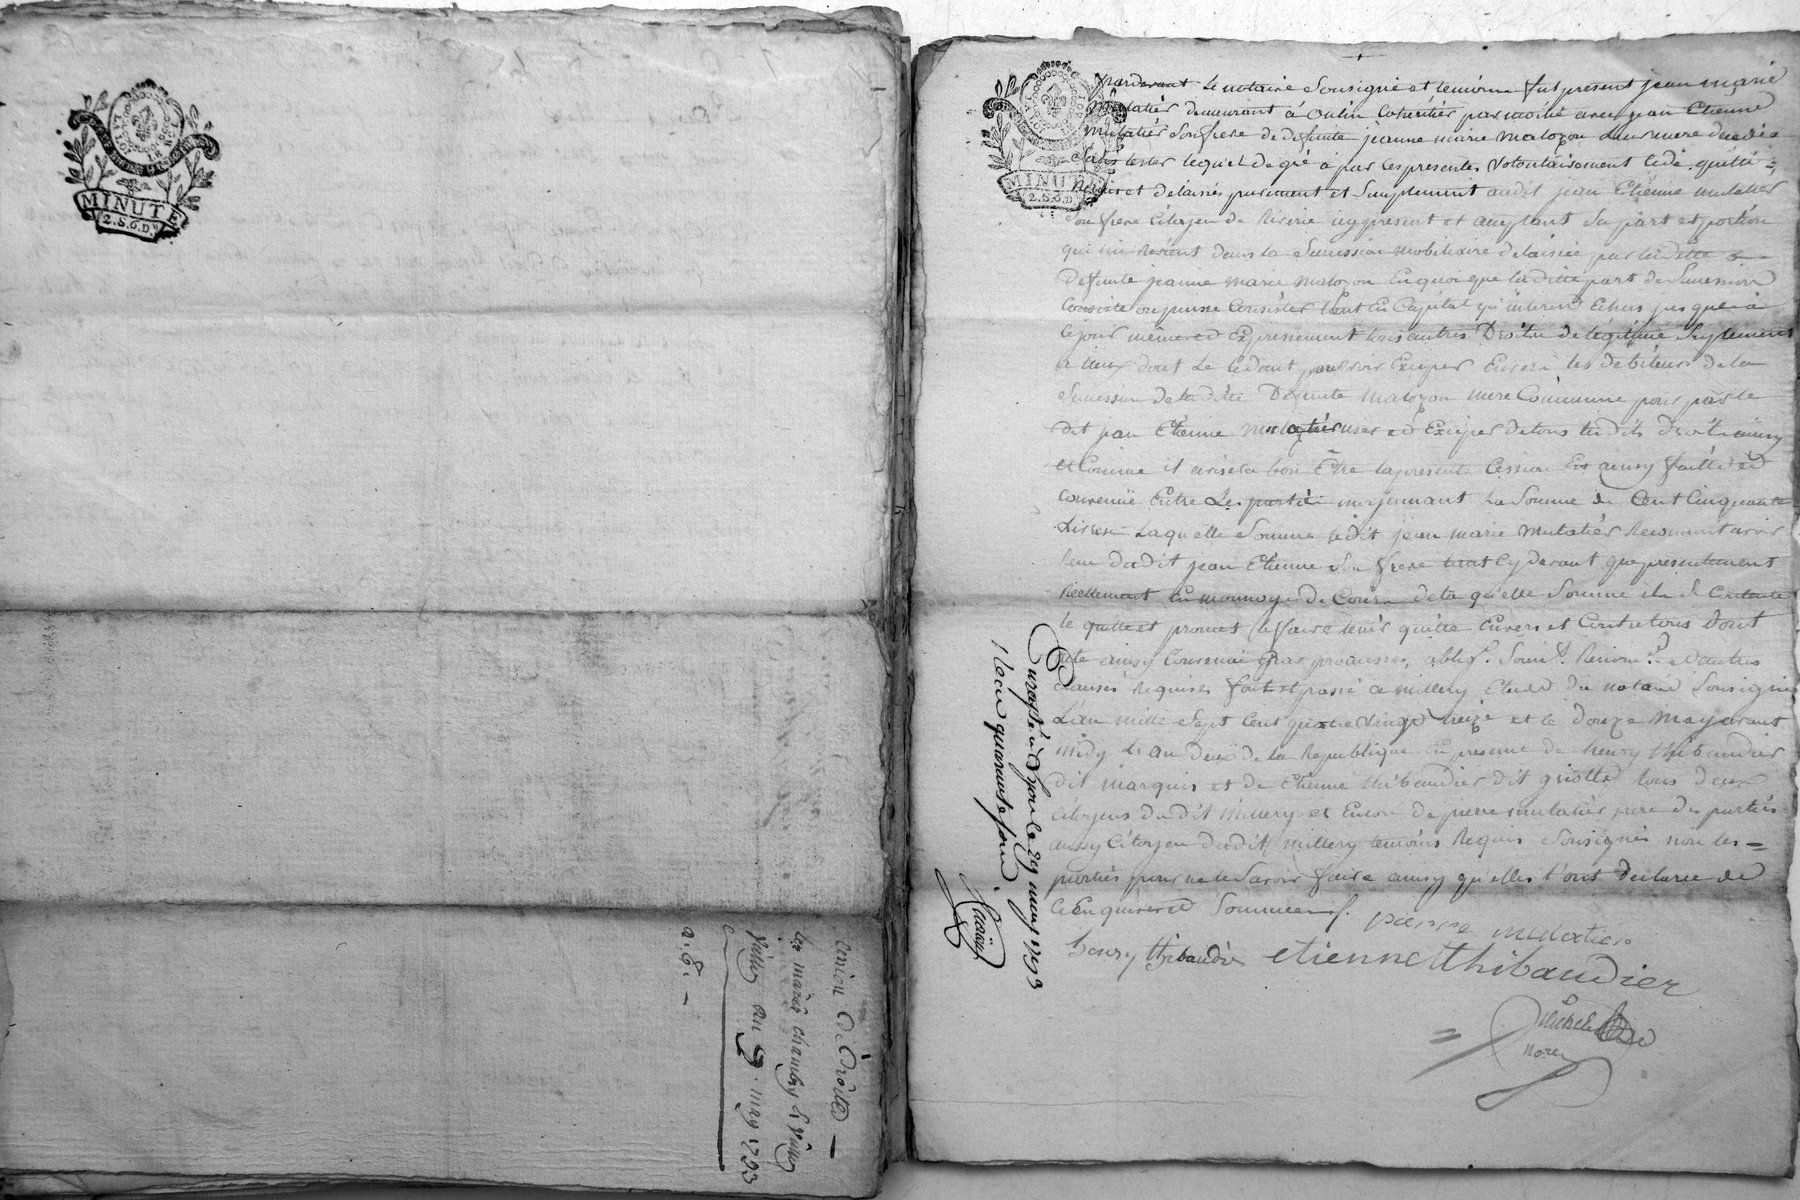 LA LOI ET LE ROI
MINUTE
2.S.6.D.
cession de droits
marie chambry
may 1793
a. 8.
pardevant le notaire Sousigné et temoins fut present jean marie
Mulatier demeurant à oulin coheritier par moitié avec jean Etienne
Mulatier Son frere de defunte jeanne marie malozon Leur mere decedée
Sans tester lequel de gré a par ces presentes volontairement cédé quitté =
remis et delaissés purement et Simplement audit jean Etienne mulatier
Son frere citoyen de icy present et acceptant Sa part et portion
qui lui revient dans la Succession mobiliaire delaissée par laditte
Defunte jeanne marie malozon En quoi que laditte part de Succession
Consiste ou puisse Consister tant En Capital qu'interest Echus jusques à
ce jour même et Expressement tous autres Droits de legitime Suplement
a iceux dont Le Cedant pourroit Exciper Envers les debiteurs de la
Succession de laditte Defunte malozon mere Commune pour par le
dit jean Etienne mulatier user et Exciper de tous lesdits droits ainsy
et Comme il avisera bon Être la presente Cession Est ainsy faitte et
convenüe Entre Les parties moyennant La Somme de Cent Cinquante
Livres Laquelle Somme ledit jean marie Mulatier Reconnoit avoir
Reçu dudit jean Etienne Son frere tant Cy devant que presentement
Reellement En monnoye de Cours de la quelle Somme il Contente
le quitte et promet le faire tenir quitte Envers et Contre tous Dont
acte ainsy Convenü par promesses, oblig.s Soum.s Renon.s et autres
clauses Requises fait et passé a millery Etude du notaire Sousigné
L'an mille Sept Cent quatre vingt treize et le douze May avant
midy L'an deux de la Republique En presence de henry thibaudier
dit marquis et de Etienne thibaudier dit griotte tous deux
citoyens dudit Millery et Encore de pierre mulatier pere des parties
aussy Citoyen dudit millery temoins Requis Sousignés non les =
parties pour ne le Savoir faire ainsy qu'elles l'ont declaré de
ce Enquises et Sommées
pierre mulatier
henry thibaudier etienne thibaudier
nore
Enregistré a le 29 may 1793
Reçu quarante sous
LA LOI ET LE ROI
MINUTE
2.S.6.D.